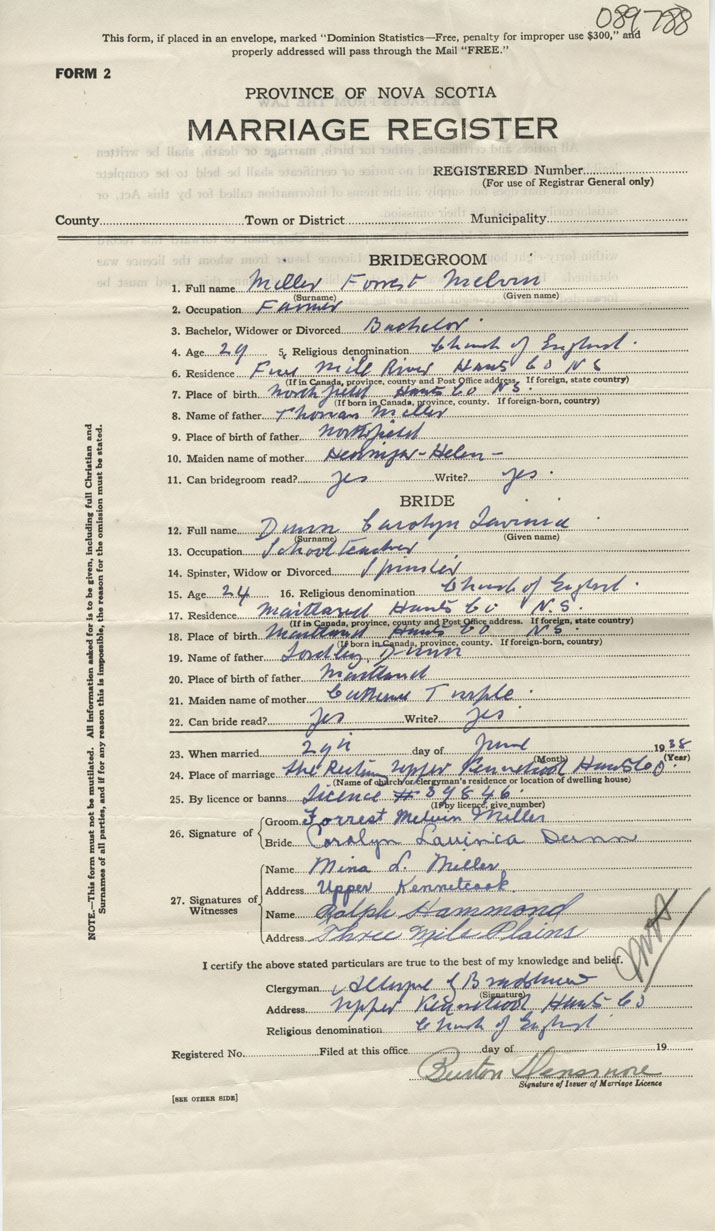 089788
This form, if placed in an envelope, marked "Dominion Statistics—Free, penalty for improper use $300," and
properly addressed will pass through the Mail "FREE."
FORM 2
PROVINCE OF NOVA SCOTIA
MARRIAGE REGISTER
REGISTERED Number
(For use of Registrar General only)
County Town or District Municipality
BRIDEGROOM
1. Full name Miller Forrest Melvin
(Surname) (Given name)
2. Occupation Farmer
3. Bachelor, Widower or Divorced Bachelor
4. Age 29 5. Religious denomination Church of England.
6. Residence Five Mile River Hants Co N S
(If in Canada, province, county and Post Office address. If foreign, state country)
7. Place of birth Northfield Hants Co N.S.
(If born in Canada, province, county. If foreign-born, country)
8. Name of father Thomas Miller
9. Place of birth of father Northfield
10. Maiden name of mother Helen -
11. Can bridegroom read? yes Write? yes.
BRIDE
12. Full name Dunn Carolyn Lavinia
(Surname) (Given name)
13. Occupation School teacher
14. Spinster, Widow or Divorced Spinster
15. Age 24 16. Religious denomination Church of England.
17. Residence Maitland Hants Co N.S.
(If in Canada, province, county and Post Office address. If foreign, state country)
18. Place of birth Maitland Hants Co N.S.
(If born in Canada, province, county. If foreign-born, country)
19. Name of father Dunn
20. Place of birth of father Maitland
21. Maiden name of mother Catherine Turple
22. Can bride read? yes Write? yes
23. When married 29th day of June 1938
(Month) (Year)
24. Place of marriage The Rectory Upper Kennetcook Hants Co
(Name of church or clergyman's residence or location of dwelling house)
25. By licence or banns Licence # 39846.
(If by licence, give number)
26. Signature of
Groom Forrest Melvin Miller
Bride Carolyn Lavinia Dunn
27. Signatures of Witnesses
Name Mina L. Miller
Address Upper Kennetcook
Name Ralph Hammond
Address Three Mile Plains
I certify the above stated particulars are true to the best of my knowledge and belief.
Clergyman Bradshaw
(Signature)
Address Upper Kennetcook Hants Co
Religious denomination Church of England.
Registered No. Filed at this office day of 19
Burton Densmore
Signature of Issuer of Marriage Licence
[SEE OTHER SIDE]
NOTE.—This form must not be mutilated. All information asked for is to be given, including full Christian and
Surnames of all parties, and if for any reason this is impossible, the reason for the omission must be stated.